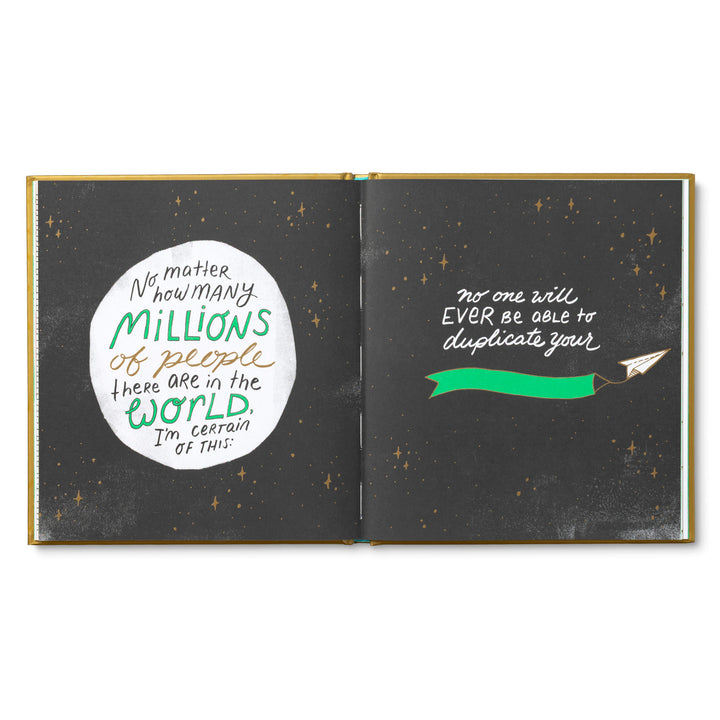 No matter
how MANY
MiLLiONS
of people
there ARE in the
WORLD,
I'm CERTAIN
OF THIS:
no one will
EVER BE ABLE to
duplicate your